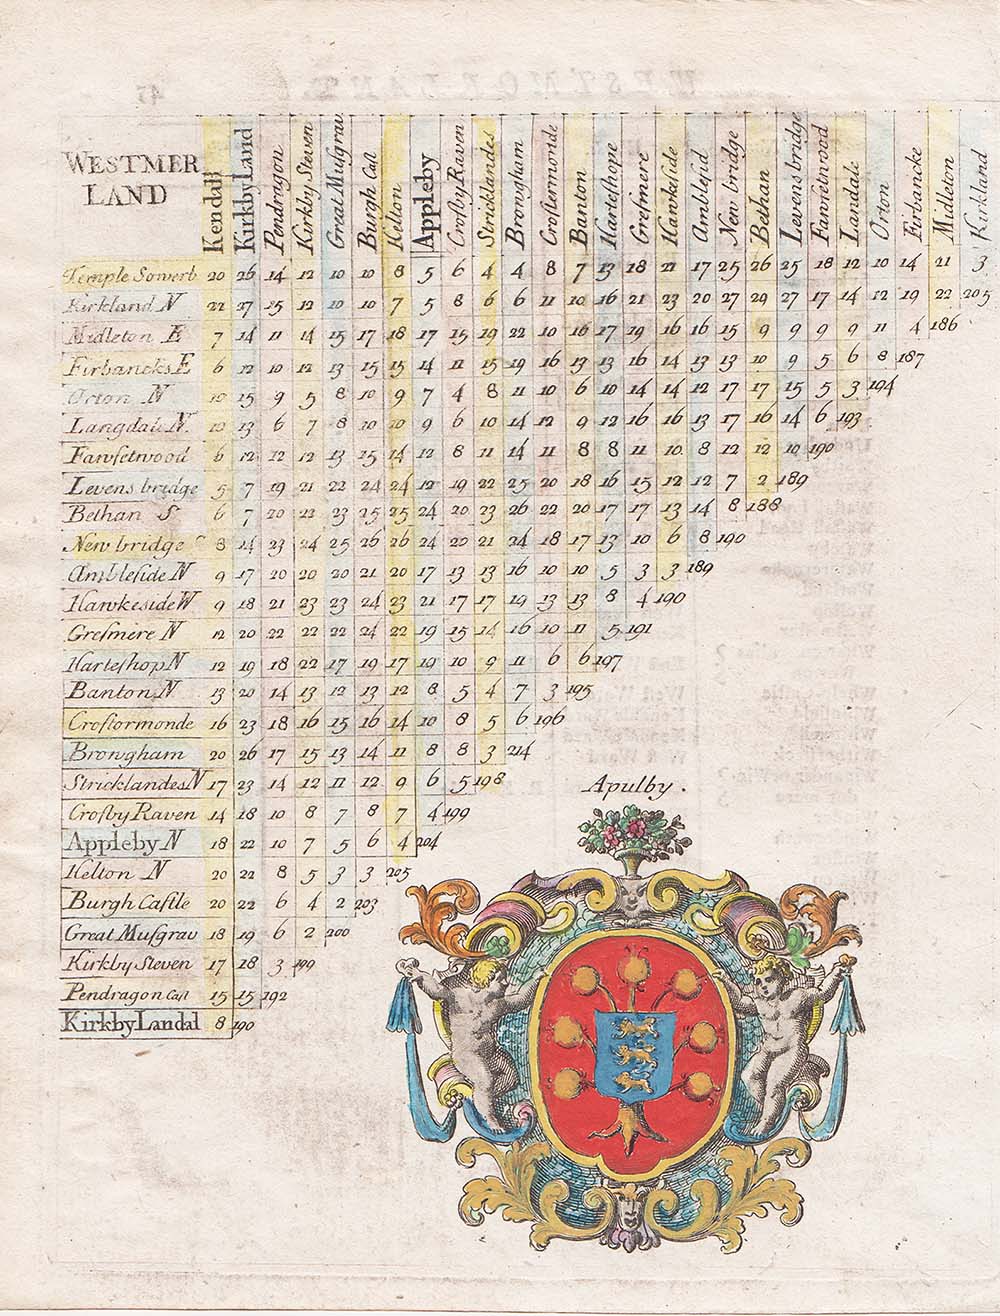 WESTMER
LAND
Kendall
KirkbyLand
Pendragon
Kirkby Steven
Great Muſgrav
Burgh Caſt
Kelton
Appleby
Croſby Raven
Stricklandes
Browgham
Croſtermonde
Banton
Harteſhop
Greſmere
Hawkſide
Ambleſid
New bridge
Bethan
Levensbridge
Fawſetwood
Landale
Orton
Firbancke
Midleton
Kirkland
Temple Sowerb 20 26 14 12 10 10 8 5 6 4 4 8 7 13 18 21 17 25 26 25 18 12 10 14 21 3
Kirkland N 22 27 15 12 10 10 7 5 8 6 6 11 10 16 21 23 20 27 29 27 17 14 12 19 22 205
Midleton E 7 14 11 14 15 17 18 17 15 19 22 10 16 17 19 16 16 15 9 9 9 9 11 4 186
Firbancks E 6 12 10 12 13 15 15 14 11 15 19 16 13 13 16 14 13 13 10 9 5 6 8 187
Orton N 10 15 9 5 8 10 9 7 4 8 11 10 6 10 14 14 12 17 17 15 5 3 194
Langdale N 10 13 6 7 8 10 10 9 6 10 14 12 9 12 16 16 13 17 16 14 6 193
Fawſetwood 6 12 12 12 13 15 14 12 8 11 14 11 8 8 11 10 8 12 12 10 190
Levens bridge 5 7 19 21 22 24 24 12 19 22 25 20 18 16 15 12 12 7 2 189
Bethan S 6 7 20 22 23 25 25 24 20 23 26 22 20 17 17 13 14 8 188
New bridge 8 14 23 24 25 26 26 24 20 21 24 18 17 13 10 6 8 190
Ambleſide N 9 17 20 20 20 21 20 17 13 13 16 10 10 5 3 3 189
Hawkeside W 9 18 21 23 23 24 23 21 17 17 19 13 13 8 4 190
Greſmere N 12 20 22 22 22 24 22 19 15 14 16 10 11 5 191
Harteſhop N 12 19 18 22 17 19 17 10 10 9 11 6 6 197
Banton N 13 20 14 13 12 13 12 8 5 4 7 3 195
Croſtormonde 16 23 18 16 15 16 14 10 8 5 6 196
Browgham 20 26 17 15 13 14 11 8 8 3 214
Stricklandes N 17 23 14 12 11 12 9 6 5 198
Croſby Raven 14 18 10 8 7 8 7 4 199
Appleby N 18 22 10 7 5 6 4 204
Kelton N 20 22 8 5 3 3 205
Burgh Caſtle 20 22 6 4 2 203
Great Muſgrau 18 19 6 2 200
Kirkby Steven 17 18 3 199
Pendragon Caſt 15 15 192
KirkbyLandal 8 190
Apulby.